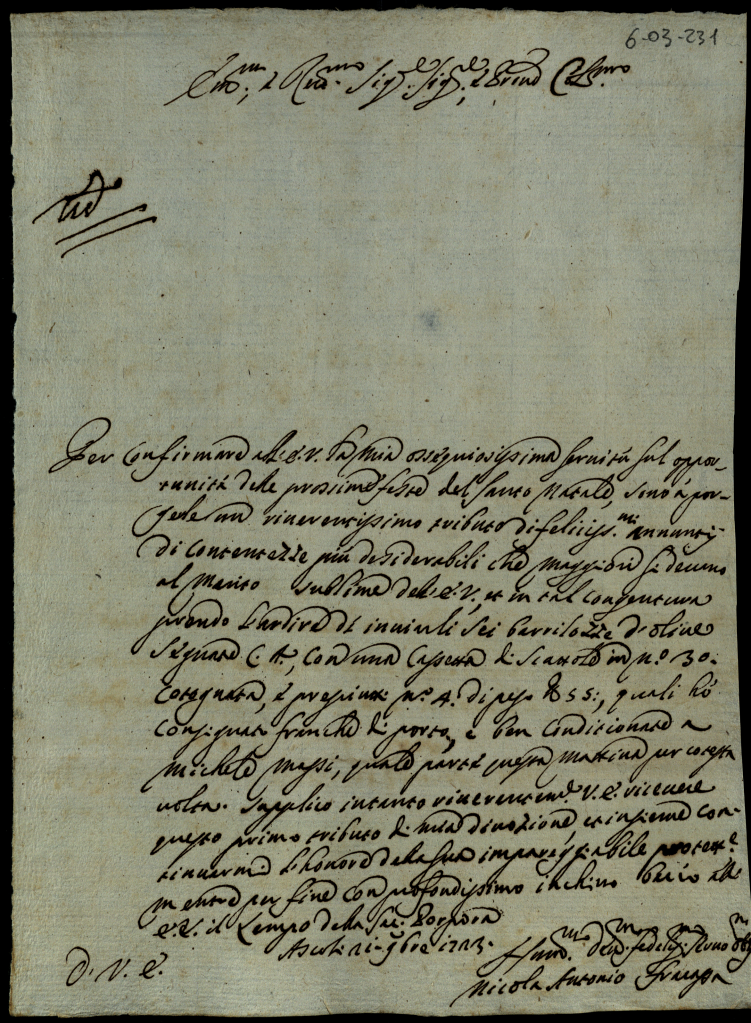 6-03-231
Em.mo, e Rev.mo Sig.re Sig.re, e Pron Col.mo
Per Confirmare all'E.V. la mia ossequiosissima servitù sul oppor-
tunità delle prossime feste del Santo Natale, sono à por-
gerle un riverentissimo tributo di feliciss.mi annuntij
di Contentezze più desiderabili che maggiori si devono
al Merito sublime dell'E.V., et in tal congentura
prendo l'ardire di inviarli sei barrilozze d'olive
segnate C.A., con una Cassetta di Scattole in n.o 30.
Cotognata, e n.o 4. di peso 55:, quali hò
consignate franche di porto, e ben conditionate a
Michele Massi, quale parte questa mattina per cotesta
volta. Supplico intanto riverentem.e V.E. ricevere
questo primo tributo di mia divozione, et insieme con-
tinuarmi l'honore della sua impareggiabile protett.e
mentre per fine con profondissimo inchino bacio all'
E.V. il Lempo della Sac. Porpora
Ascoli 21 9bre 1723.
D. V. E.
Hum.mo Dev.mo fedeliss.mo Servo obl.mo
Nicola Antonio